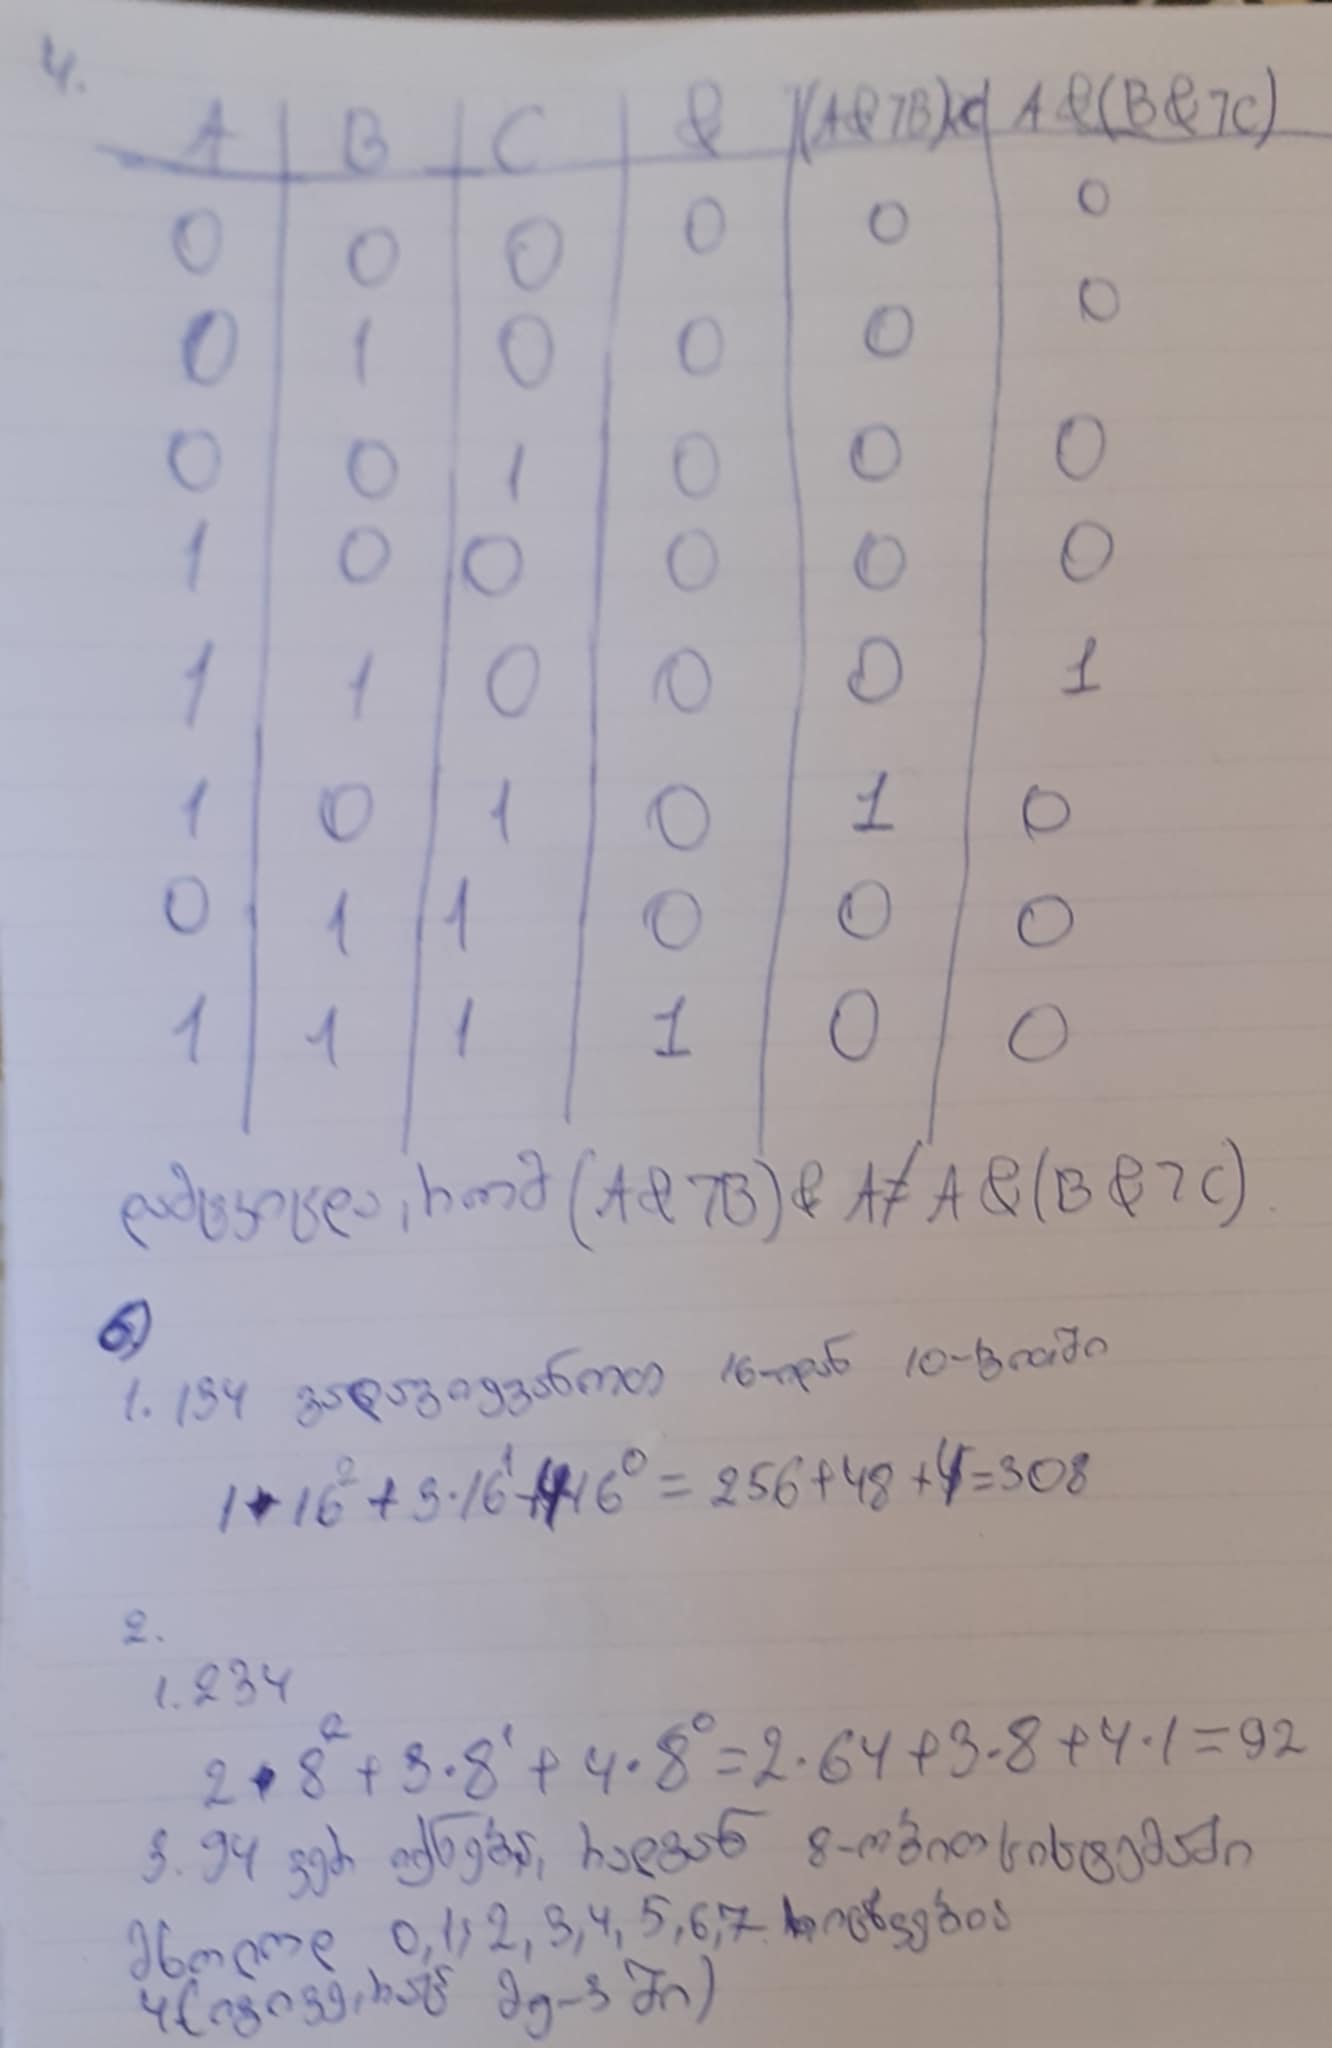 4.
A B C & (A&7B)&C A&(B&7C)
0 0 0 0 0 0
0 1 0 0 0 0
0 0 1 0 0 0
1 0 0 0 0 0
1 1 0 0 0 1
1 0 1 0 1 0
0 1 1 0 0 0
1 1 1 1 0 0
დამტკიცდა, რომ (A&7B)& A≠A&(B&7C).
6)
1. 134 გადავიყვანოთ 16-დან 10-ბითში
1•16² + 3·16¹ + 4·16⁰ = 256+48+4=308
2.
1. 234
2•8² + 3·8¹ + 4·8⁰ = 2·64+3·8+4·1=92
3. 94 ვერ იქნება, რადგან 8-ობით სისტემაში
მხოლოდ 0,1,2,3,4,5,6,7 რიცხვებია
4(იგივე, რაც მე-3 ში)